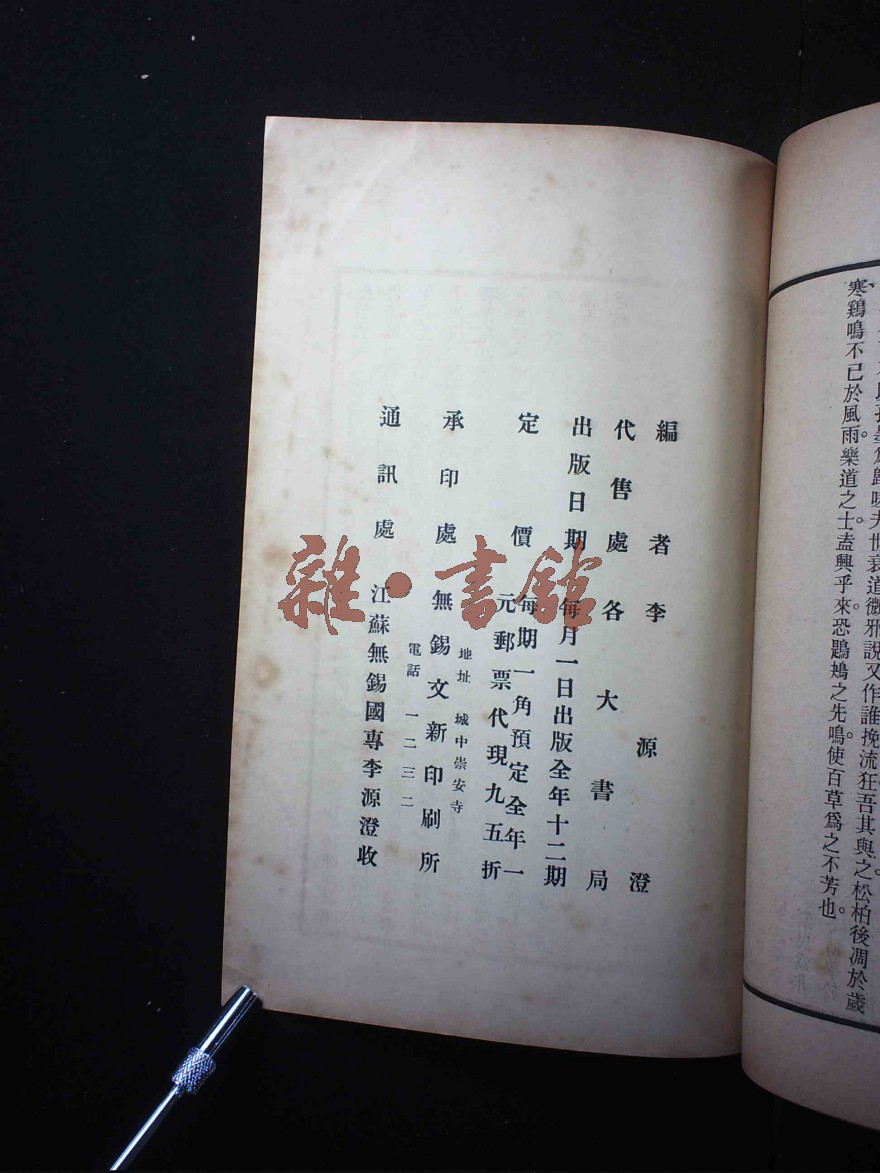 寒鷄鳴不已於風雨。樂道之士盍興乎來。恐鶗鴂之先鳴。使百草爲之不芳也。
世衰道微邪說又作誰挽流狂吾其與之。松柏後凋於歲
編者 李源澄
代售處 各大書局
出版日期 每月一日出版全年十二期
定價 每期一角預定全年一
元郵票代現九五折
承印處 無錫文新印刷所
地址 城中崇安寺
電話 一二三二
通訊處 江蘇無錫國專李源澄收
雜·書館